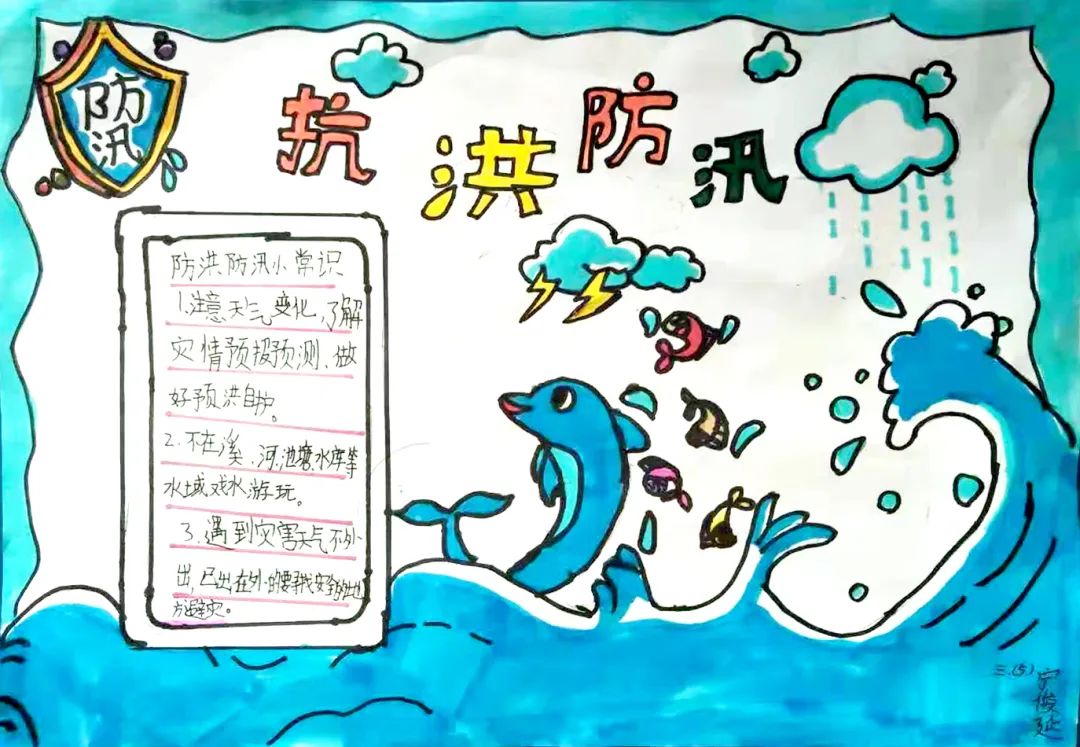 防
汛
抗洪防汛
防洪防汛小常识
1.注意天气变化,了解
灾情预报预测、做
好预洪自护。
2.不在溪、河、池塘、水库等
水域戏水游玩。
3.遇到灾害天气不外
出,已出在外的要寻找安全的地
方避灾。
三.(5)
宁俊延